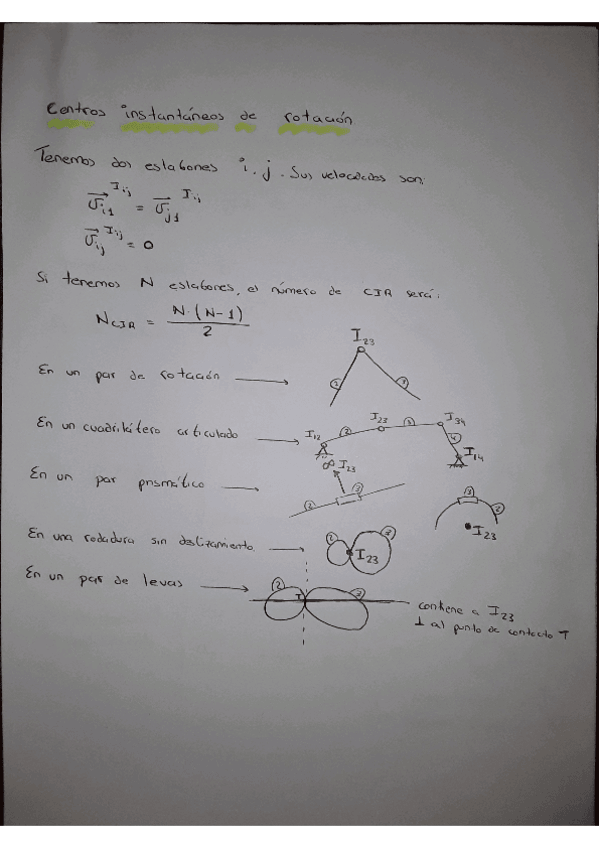 Centros instantáneos de rotación
Tenemos dos eslabones i, j. Sus velocidades son:
v⃗ᵢ₁^Iij = v⃗ⱼ₁^Iij
v⃗ᵢⱼ^Iij = 0
Si tenemos N eslabones, el número de CIR será:
N_CIR = N·(N-1) / 2
En un par de rotación → I23 2 3
En un cuadrilátero articulado → I12 2 I23 3 I34 4 I14
En un par prismático → ∞ I23 2 3 3 2 I23
En una rodadura sin deslizamiento → 2 3 I23
En un par de levas → 2 T 3
contiene a I23
⊥ al punto de contacto T